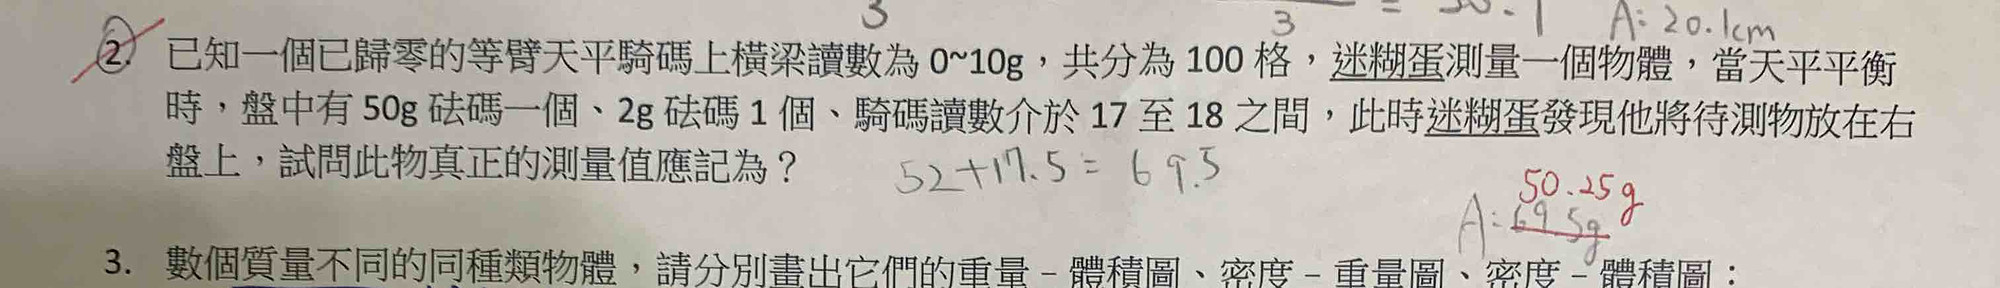 3
3 = 30.1 A: 20.1cm
2. 已知一個已歸零的等臂天平騎碼上橫梁讀數為 0~10g，共分為 100 格，迷糊蛋測量一個物體，當天平平衡
時，盤中有 50g 砝碼一個、2g 砝碼 1 個、騎碼讀數介於 17 至 18 之間，此時迷糊蛋發現他將待測物放在右
盤上，試問此物真正的測量值應記為？ 52+17.5=69.5
50.25g
A: 69.5g
3. 數個質量不同的同種類物體，請分別畫出它們的重量－體積圖、密度－重量圖、密度－體積圖：